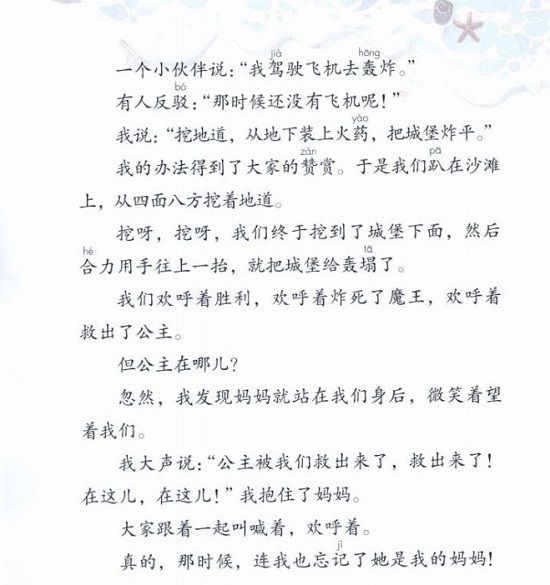 jià hōng
一个小伙伴说：“我驾驶飞机去轰炸。”
bó
有人反驳：“那时候还没有飞机呢！”
yào
我说：“挖地道，从地下装上火药，把城堡炸平。”
zàn pā
我的办法得到了大家的赞赏。于是我们趴在沙滩
上，从四面八方挖着地道。
挖呀，挖呀，我们终于挖到了城堡下面，然后
hé tā
合力用手往上一抬，就把城堡给轰塌了。
我们欢呼着胜利，欢呼着炸死了魔王，欢呼着
救出了公主。
但公主在哪儿？
忽然，我发现妈妈就站在我们身后，微笑着望
着我们。
我大声说：“公主被我们救出来了，救出来了！
在这儿，在这儿！”我抱住了妈妈。
大家跟着一起叫喊着，欢呼着。
jì
真的，那时候，连我也忘记了她是我的妈妈！